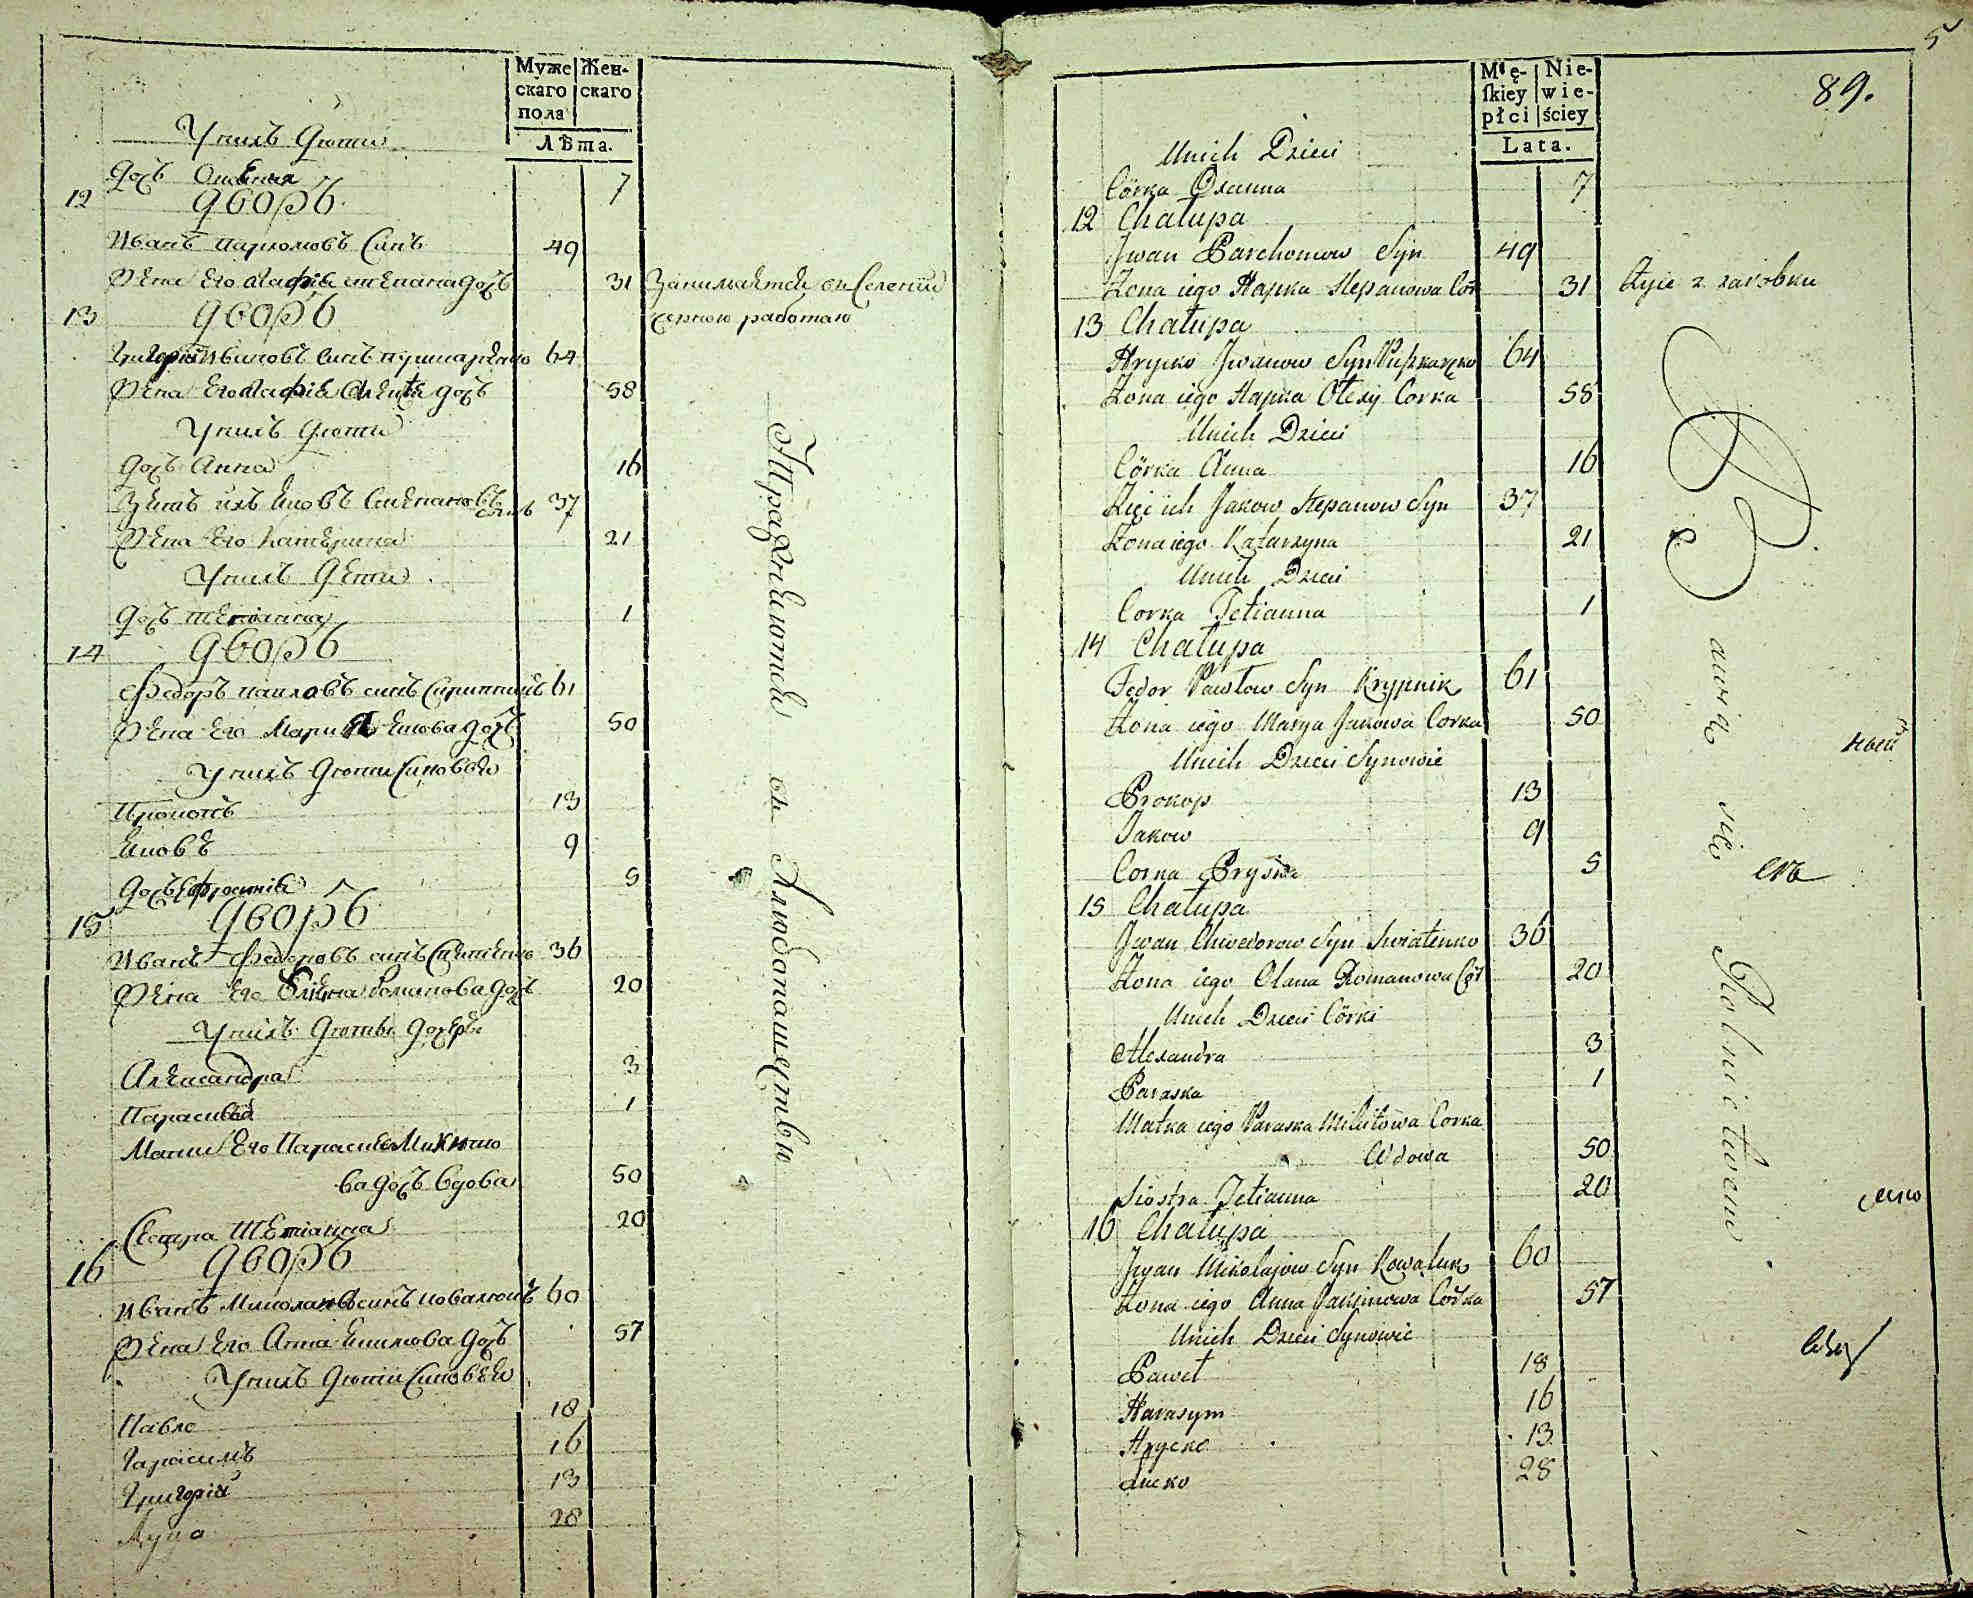 Муже
скаго
пола
Жен-
скаго
Лѣта.
Унихъ Дѣти
Дочъ 7
12 Дворъ
Иванъ Пархомовъ Синъ 49
Жена Его Агафiя Степана дочъ 31 Занимается въ Селении
черною работаю
13 Дворъ
Григорiй Ивановъ синъ Пушкаренко 64
Жена Его Агафiя Олексѣя дочъ 58
Унихъ Дѣти
Дочъ Анна 16
Зять ихъ Яковъ Степановъ
синъ 37
Жена Его Катерина 21
Унихъ Дѣти
Дочъ Тетiанна 1
14 Дворъ
Федоръ Павловъ синъ 61
Жена Его Мария Якова дочъ 50
Унихъ Дѣти Синовѣя
Прокопъ 13
Яковъ 9
Дочъ Ефросинiя 5
15 Дворъ
Иванъ Федоровъ синъ 36
Жена Его Романова дочъ 20
Унихъ Дѣти Дочери
Александра 3
Параскева 1
Мати Его Параскева
ва дочъ вдова 50
Сестра Тетiанна 20
16 Дворъ
Иванъ Миколаевъ синъ Ковалюкъ 60
Жена Его Анна Якимова дочъ 57
Унихъ Дѣти Синовѣя
Павло 18
Гарасимъ 16
Григорiй 13
Луца 28
Упражняются въ Хлѣбопашествѣ
5
89.
Mę-
ſkiey
płci
Nie-
wie-
ściey
Lata.
Unich Dzieci
Córka Oxanna 7
12 Chałupa
Jwan Parchomow Syn 49
Zona iego Hapka Stepanowa Cór 31 Zyie z zarobku
13 Chałupa
Hrycko Jwanow Syn Puszkarzko 64
Zona iego Hapka Olexy Corka 58
Unich Dzieci
Córka Anna 16
Zięć ich Jakow Stepanow Syn 37
Zona iego Katarzyna 21
Unich Dzieci
Corka Tetianna 1
14 Chałupa
Fedor Pawłow Syn Krypnik 61
Zona iego Marya Jakowa Corka 50
Unich Dzieci Synowie
Prokop 13
Jakow 9
Corka Pryska 5
15 Chałupa
Jwan Chwedorow Syn Swiatenko 36
Zona iego Olana Romanowa Cór 20
Unich Dzieci Córki
Alexandra 3
Paraska 1
Matka iego Paraska Mikitowa Corka
Wdowa 50
Siostra Tetianna 20
16 Chałupa
Jwan Mikołajow Syn Kowaluk 60
Zona iego Anna Jakimowa Corka 57
Unich Dzieci Synowie
Paweł 18
Harasym 16
Hrycko 13
Lucko 28
Bawią się Rolnictwem